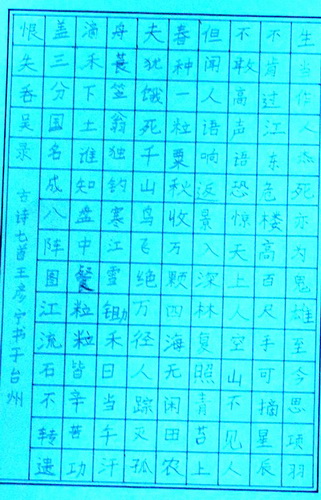 生当作人杰死亦为鬼雄至今思项羽
不肯过江东危楼高百尺手可摘星辰
不敢高声语恐惊天上人空山不见人
但闻人语响返景入深林复照青苔上
春种一粒粟秋收万颗四海无闲田农
夫犹饿死千山鸟飞绝万径人踪灭孤
舟蓑笠翁独钓寒江雪锄禾日当午汗
滴禾下土谁知盘中餐粒粒皆辛苦功
盖三分国名成八阵图江流石不转遗
恨失吞吴录
古诗七首王彦宁书于台州